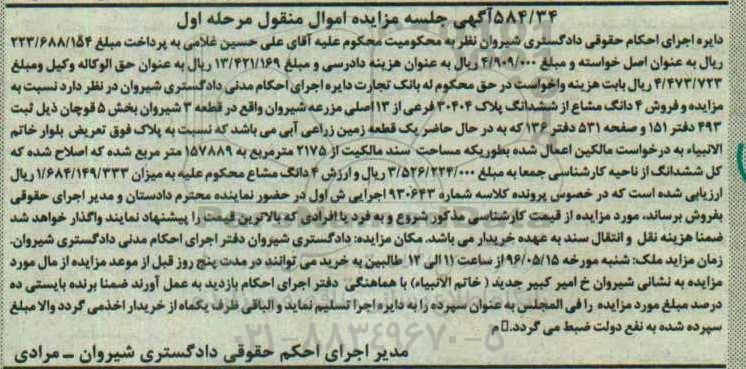 ۵۸۴/۳۴آگهی جلسه مزایده اموال منقول مرحله اول
دایره اجرای احکام حقوقی دادگستری شیروان نظر به محکومیت محکوم علیه آقای علی حسین غلامی به پرداخت مبلغ ۲۲۳/۶۸۸/۱۵۴
ریال به عنوان اصل خواسته و مبلغ ۴/۹۰۹/۰۰۰ ریال به عنوان هزینه دادرسی و مبلغ ۱۳/۴۲۱/۱۶۹ ریال به عنوان حق الوکاله وکیل ومبلغ
۴/۴۷۳/۷۲۳ ریال بابت هزینه واخواست در حق محکوم له بانک تجارت دایره اجرای احکام مدنی دادگستری شیروان در نظر دارد نسبت به
مزایده و فروش ۴ دانگ مشاع از ششدانگ پلاک ۳۰۴۰۴ فرعی از ۱۳ اصلی مزرعه شیروان واقع در قطعه ۳ شیروان بخش ۵ قوچان ذیل ثبت
۴۹۳ دفتر ۱۵۱ و صفحه ۵۳۱ دفتر ۱۳۶ که به در حال حاضر یک قطعه زمین زراعی آبی می باشد که نسبت به پلاک فوق تعریض بلوار خاتم
الانبیاء به درخواست مالکین اعمال شده بطوریکه مساحت سند مالکیت از ۲۱۷۵ مترمربع به ۱۵۷۸۸۹ متر مربع شده که اصلاح شده که
کل ششدانگ از ناحیه کارشناسی جمعا به مبلغ ۳/۵۲۶/۲۲۴/۰۰۰ ریال و ارزش ۴ دانگ مشاع محکوم علیه به میزان ۱/۶۸۴/۱۴۹/۳۳۳ ریال
ارزیابی شده است که در خصوص پرونده کلاسه شماره ۹۳۰۶۴۳ اجرایی ش اول در حضور نماینده محترم دادستان و مدیر اجرای حقوقی
بفروش برساند، مورد مزایده از قیمت کارشناسی مذکور شروع و به فرد یا افرادی که بالاترین قیمت را پیشنهاد نمایند واگذار خواهد شد
ضمنا هزینه نقل و انتقال سند به عهده خریدار می باشد. مکان مزایده: دادگستری شیروان دفتر اجرای احکام مدنی دادگستری شیروان.
زمان مزاید ملک: شنبه مورخه ۹۶/۰۵/۱۵ از ساعت ۱۱ الی ۱۲ طالبین به خرید می توانند در مدت پنج روز قبل از موعد مزایده از مال مورد
مزایده به نشانی شیروان خ امیر کبیر جدید ( خاتم الانبیاء) با هماهنگی دفتر اجرای احکام بازدید به عمل آورند ضمنا برنده بایستی ده
درصد مبلغ مورد مزایده را فی المجلس به عنوان سپرده را به دایره اجرا تسلیم نماید و الباقی ظرف یکماه از خریدار اخذمی گردد والا مبلغ
سپرده شده به نفع دولت ضبط می گردد.م
مدیر اجرای احکم حقوقی دادگستری شیروان ـ مرادی
۰۲۱-۸۸۳۴۹۶۷۰-۵